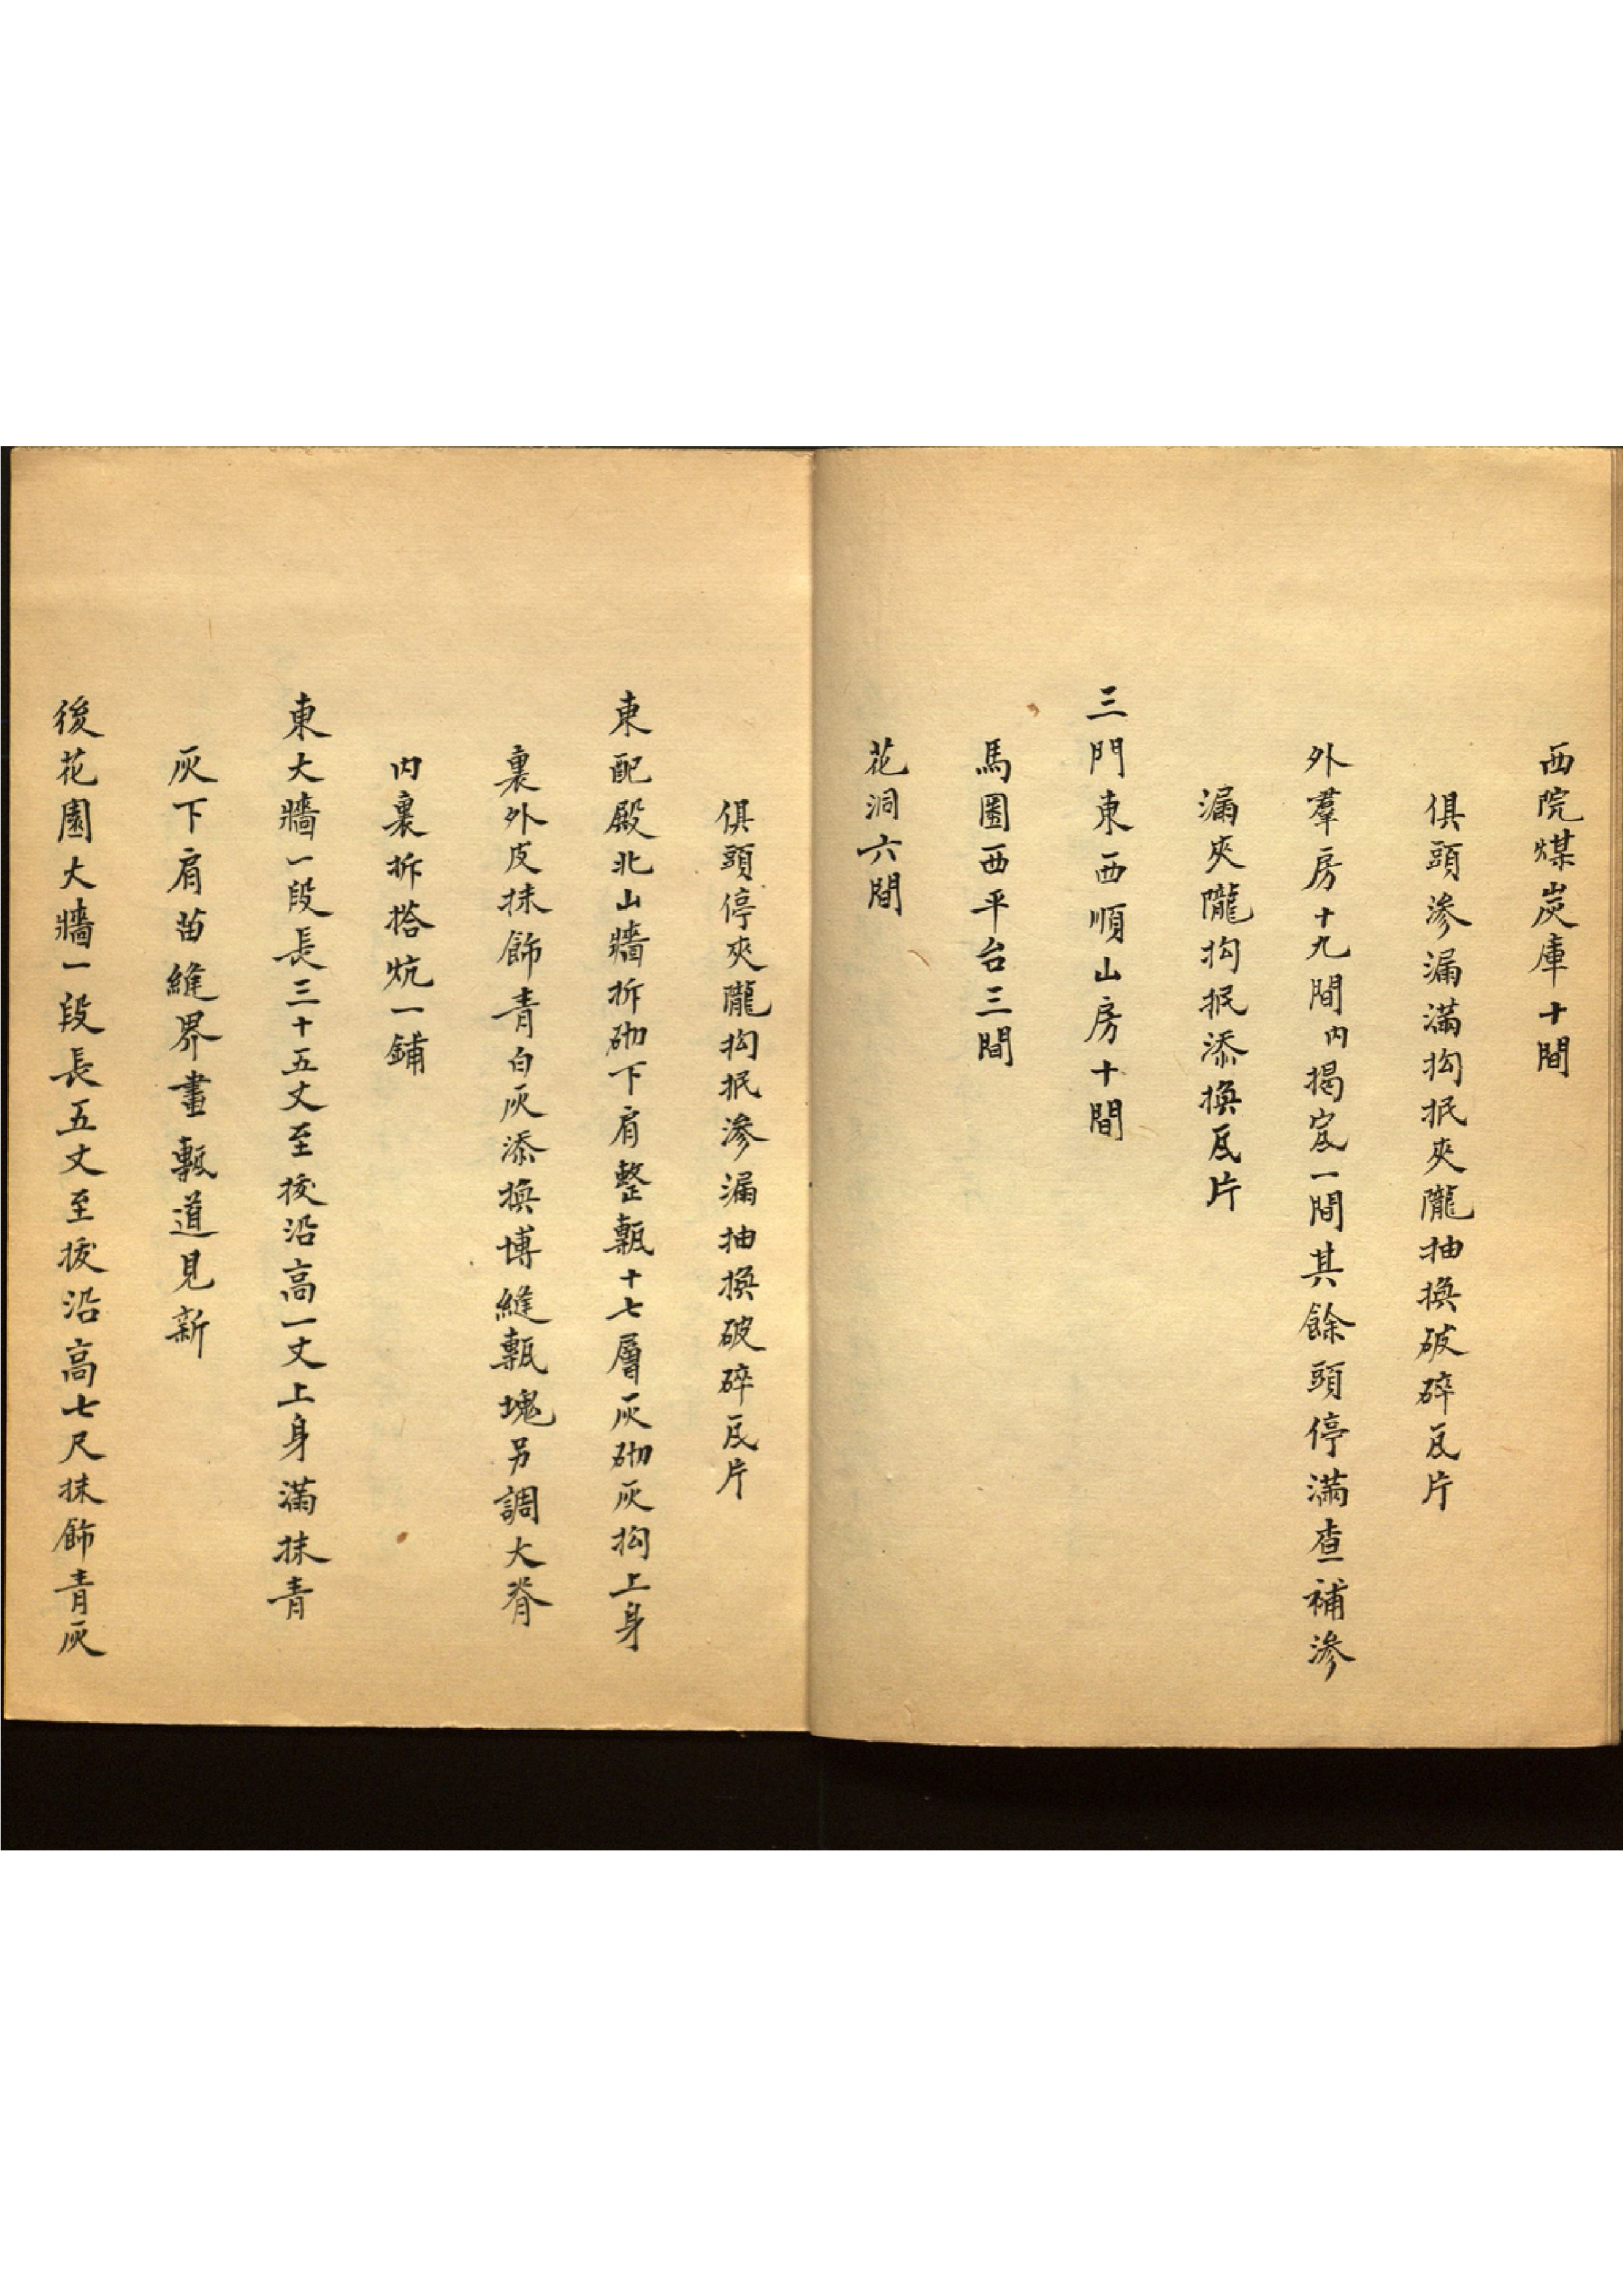 西院煤炭庫十間
俱頭滲漏滿抅抿夾隴抽換破碎瓦片
外羣房十九間内揭宼一間其餘頭停滿查補滲
漏夾隴抅抿添換瓦片
三門東西順山房十間
馬圈西平台三間
花洞六間
俱頭停夾隴抅抿滲漏抽換破碎瓦片
東配殿北山牆拆砌下肩整甎十七層灰砌灰抅上身
裏外皮抹飾青白灰添換博縫甎塊另調大脊
内裏拆搭炕一鋪
東大牆一段長三十五丈至拔沿高一丈上身滿抹青
灰下肩苗縫界畫甎道見新
後花園大牆一段長五丈至拔沿高七尺抹飾青灰